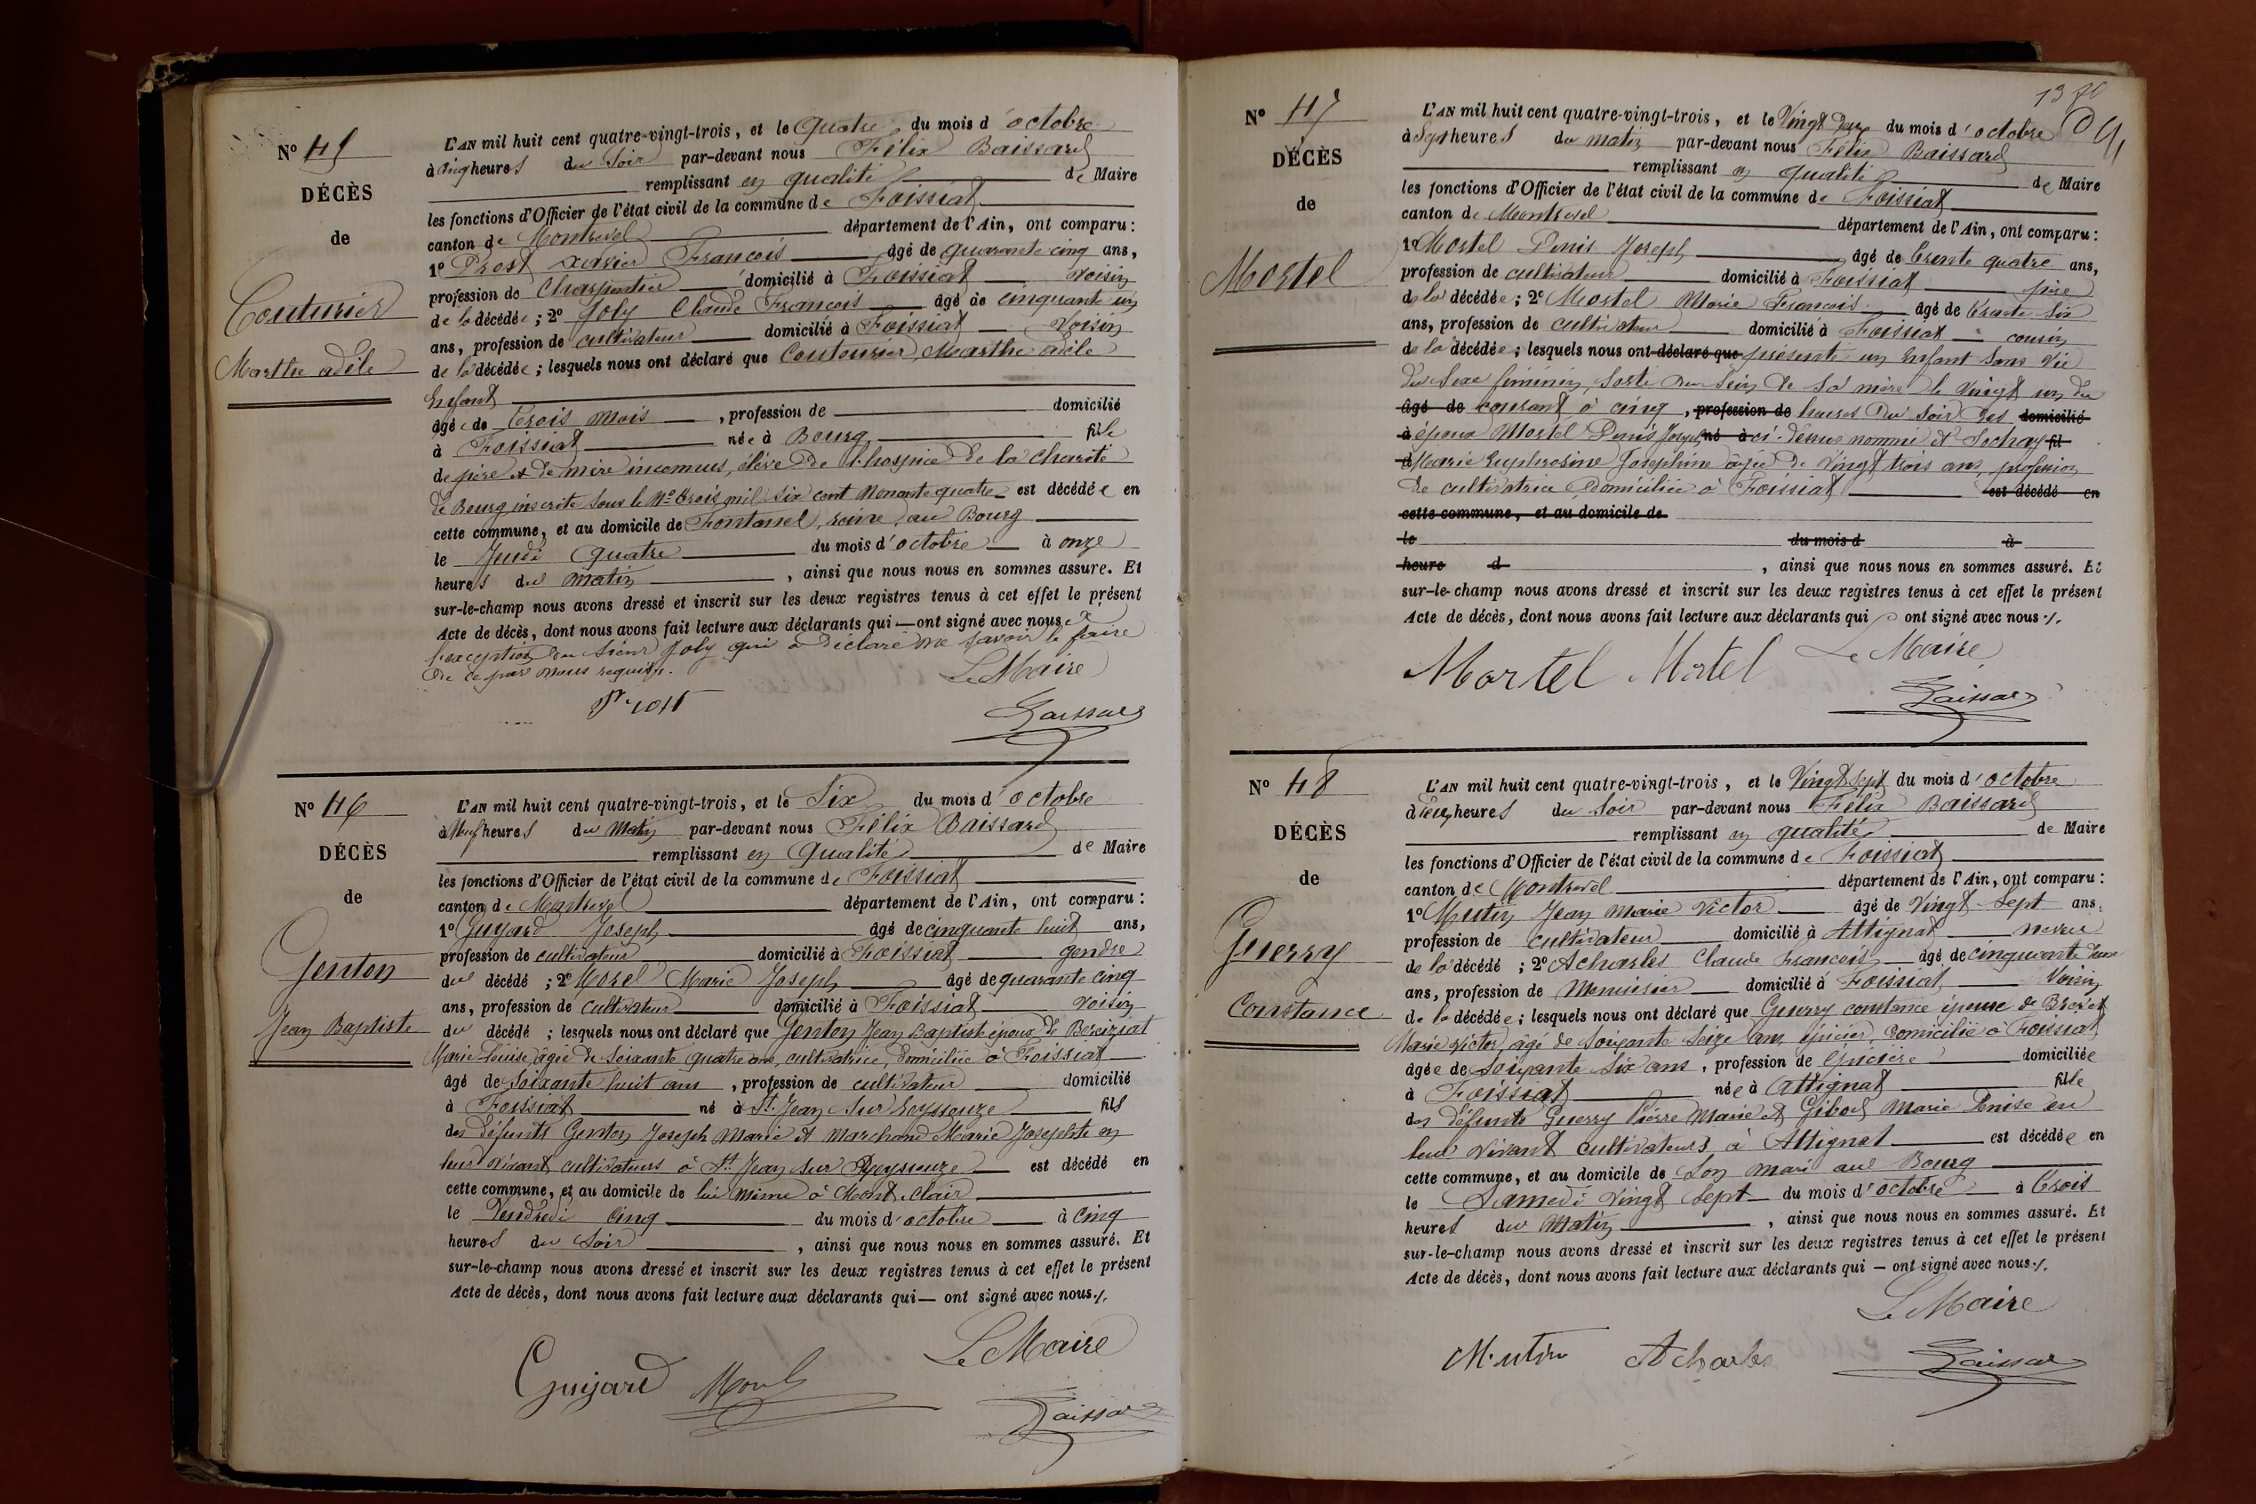 N° 45
DÉCÈS
de
Couturier
Marthe adèle
L'AN mil huit cent quatre-vingt-trois, et le quatre du mois d'octobre
à cinq heures du soir par-devant nous Félix Baissard
remplissant en qualité de Maire
les fonctions d'Officier de l'état civil de la commune de Foissiat
canton de Montrevel département de l'Ain, ont comparu:
1° Prost xavier François âgé de quarante cinq ans,
profession de Charpentier domicilié à Foissiat voisin
de la décédée; 2° Joly Claude François âgé de cinquante un
ans, profession de cultivateur domicilié à Foissiat Voisin
de la décédée; lesquels nous ont déclaré que Couturier Marthe adèle
Enfant
âgée de trois mois, profession de domicilié
à Foissiat née à Bourg fille
de père et de mère inconnus, élève de l'hospice de la Charité
de Bourg inscrite sous le N° trois mil six cent nonante quatre est décédée en
cette commune, et au domicile de Fontanel, reine, au Bourg
le Jeudi quatre du mois d'octobre à onze
heures du matin, ainsi que nous nous en sommes assuré. Et
sur-le-champ nous avons dressé et inscrit sur les deux registres tenus à cet effet le présent
Acte de décès, dont nous avons fait lecture aux déclarants qui — ont signé avec nous à
l'exception du sieur Joly qui a déclaré ne savoir le faire
de ce par nous requis.
Le Maire
Prost
Baissard
N° 46
DÉCÈS
de
Genton
Jean Baptiste
L'AN mil huit cent quatre-vingt-trois, et le Six du mois d'octobre
à Neuf heures du Matin par-devant nous Félix Baissard
remplissant en qualité de Maire
les fonctions d'Officier de l'état civil de la commune de Foissiat
canton de Montrevel département de l'Ain, ont comparu:
1° Guyard Joseph âgé de cinquante huit ans,
profession de cultivateur domicilié à Foissiat gendre
du décédé; 2° Morel Marie Joseph âgé de quarante cinq
ans, profession de cultivateur domicilié à Foissiat voisin
du décédé; lesquels nous ont déclaré que Genton Jean Baptiste époux de Berciziat
Marie Louise âgée de soixante quatre ans, cultivatrice, domiciliée à Foissiat
âgé de soixante huit ans, profession de cultivateur domicilié
à Foissiat né à St Jean sur Reyssouze fils
des défunts Genton Joseph Marie et Marchand Marie Josephte en
leur vivant cultivateurs à St Jean sur Reyssouze est décédé en
cette commune, et au domicile de lui même à Mont-Clair
le Vendredi cinq du mois d'octobre à cinq
heures du soir, ainsi que nous nous en sommes assuré. Et
sur-le-champ nous avons dressé et inscrit sur les deux registres tenus à cet effet le présent
Acte de décès, dont nous avons fait lecture aux déclarants qui — ont signé avec nous./.
Le Maire
Guyard Morel
Baissard
N° 47
DÉCÈS
de
Mortel
L'AN mil huit cent quatre-vingt-trois, et le Vingt deux du mois d'octobre
à Sept heures du matin par-devant nous Félix Baissard
remplissant en qualité de Maire
les fonctions d'Officier de l'état civil de la commune de Foissiat
canton de Montrevel département de l'Ain, ont comparu:
1° Mortel Denis Joseph âgé de trente quatre ans,
profession de cultivateur domicilié à Foissiat père
de la décédée; 2° Mortel Marie François âgé de trente six
ans, profession de cultivateur domicilié à Foissiat cousin
de la décédée; lesquels nous ont déclaré que présenté un Enfant sans Vie
du Sexe féminin, sorti du sein de sa mère le vingt un du
âgé de courant à cinq, profession de heures du soir des domicilié
à époux Mortel Denis Joseph né à ci-dessus nommé et Sochay fil
d Marie Euphrosine Josephine âgée de vingt trois ans, profession
de cultivatrice domiciliée à Foissiat est décédé en
cette commune, et au domicile de
le du mois d à
heure d, ainsi que nous nous en sommes assuré. Et
sur-le-champ nous avons dressé et inscrit sur les deux registres tenus à cet effet le présent
Acte de décès, dont nous avons fait lecture aux déclarants qui ont signé avec nous./.
Mortel Mortel Le Maire
Baissard
N° 48
DÉCÈS
de
Guerry
Constance
L'AN mil huit cent quatre-vingt-trois, et le Vingt Sept du mois d'octobre
à deux heures du soir par-devant nous Félix Baissard
remplissant en qualité de Maire
les fonctions d'Officier de l'état civil de la commune de Foissiat
canton de Montrevel département de l'Ain, ont comparu:
1° Mutin Jean Marie Victor âgé de Vingt-Sept ans,
profession de cultivateur domicilié à Attignat neveu
de la décédé; 2° Acharles Claude François âgé de cinquante deux
ans, profession de Menuisier domicilié à Foissiat Voisin
de la décédée; lesquels nous ont déclaré que Guerry constance épouse de
Marie Victor, âgé de soixante seize ans, épicier, domicilié à Foissiat
âgée de soixante six ans, profession de épicière domiciliée
à Foissiat née à Attignat fille
des défunts Guerry Pierre Marie et Gibod Marie Denise en
leur vivant cultivateurs à Attignat est décédée en
cette commune, et au domicile de son mari au Bourg
le Samedi vingt sept du mois d'octobre à trois
heures du Matin, ainsi que nous nous en sommes assuré. Et
sur-le-champ nous avons dressé et inscrit sur les deux registres tenus à cet effet le présent
Acte de décès, dont nous avons fait lecture aux déclarants qui — ont signé avec nous./.
Le Maire
Mutin Acharles Baissard